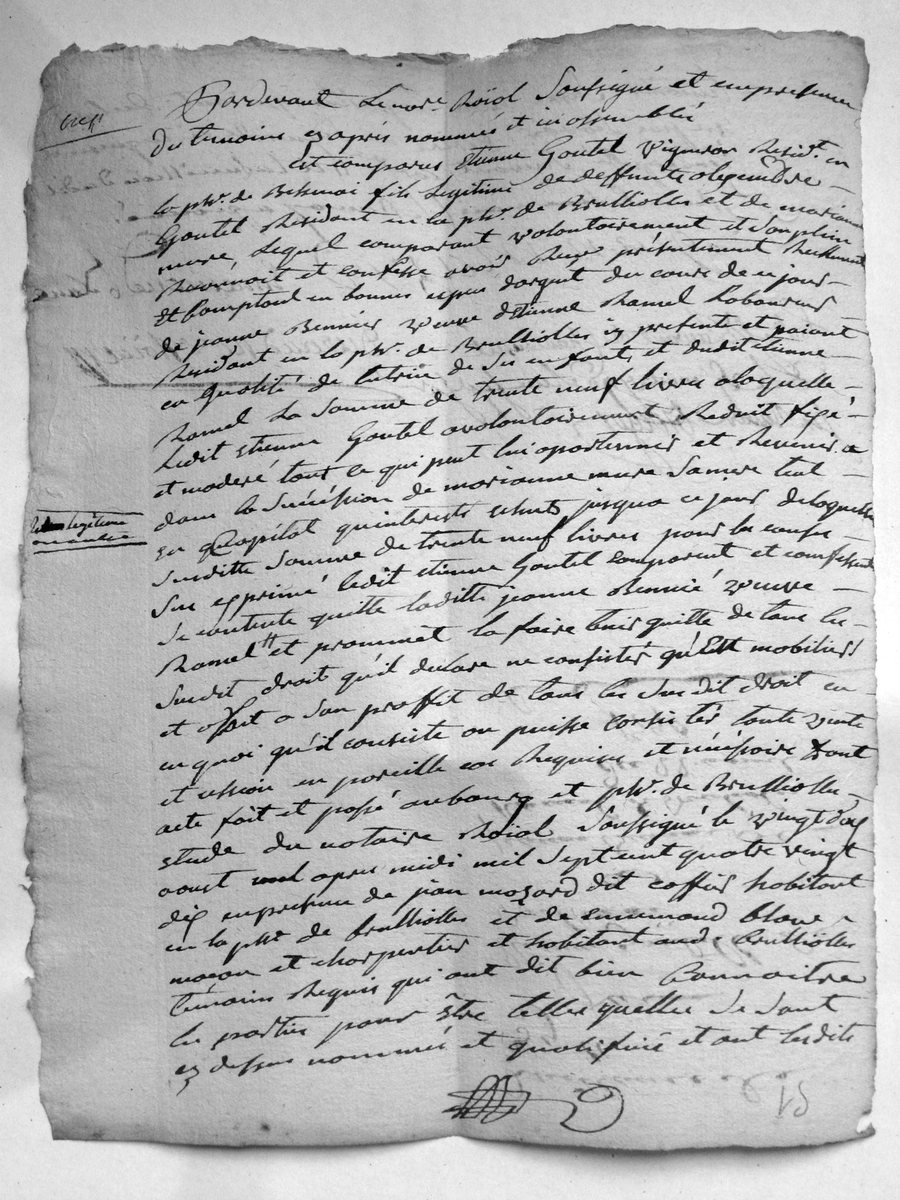 Pardevant Le no.re Roïal Soussigné et en presence
des temoins cy après nommés et ici assemblés
Est comparus etienne Goutel vigneron Resid.t en
la ph.e de Bessenai fils Legitime de deffunt alexendre
Goutel Residant en la ph.e de Brulliolles et de marianne
mure, Lequel comparant volontairement et Son plein
et Comptant en bonnes espece dargent du cours de ce jour
de jeanne Bennier veuve detienne Ramel Laboureur
Residant en la ph.e de Brulliolles icy presente et paiant
en qualité de tutrice de Ses enfants et dudit etienne
Ramel La Somme de trente neuf livres a laquelle
Ledit etienne Goutel a volontairement Reduit figé
et moderé tout ce qui peut lui apartennir et Revenir
dans la Succession de marianne mure Sa mere tant
en Capital qu'interets echuts jusqua ce jour de laquelle
Susditte Somme de trente neuf livres pour les causes
Sus exprimé ledit etienne Goutel comparant et confessant
Se contente quitte laditte jeanne Bennié veuve
Ramel et prommet la faire tenir quitte de tous les
Susdit droit qu'il declare ne consister qu'en mobiliers
et a Son proffit de tous les Susdit droit en
en quoi qu'il consiste ou puisse consister toute vente
et cession en pareille cas Requise et nécessaire dont
acte fait et passé au bourg et ph.e de Brulliolles
etude du notaire Roïal Soussigné le vingt
aoust apres midi mil Sept cent quatre vingt
dix en presence de jean mozard dit coffier habitant
en la ph.e de brulliolles et de ennemond blanc
maçon et charpentier et habitant aud. Brulliolles
temoins Requis qui ont dit bien Connoitre
les parties pour être telles quelles Se sont
cy dessus nommés et qualifiées et ont lesdits
Legitime
15